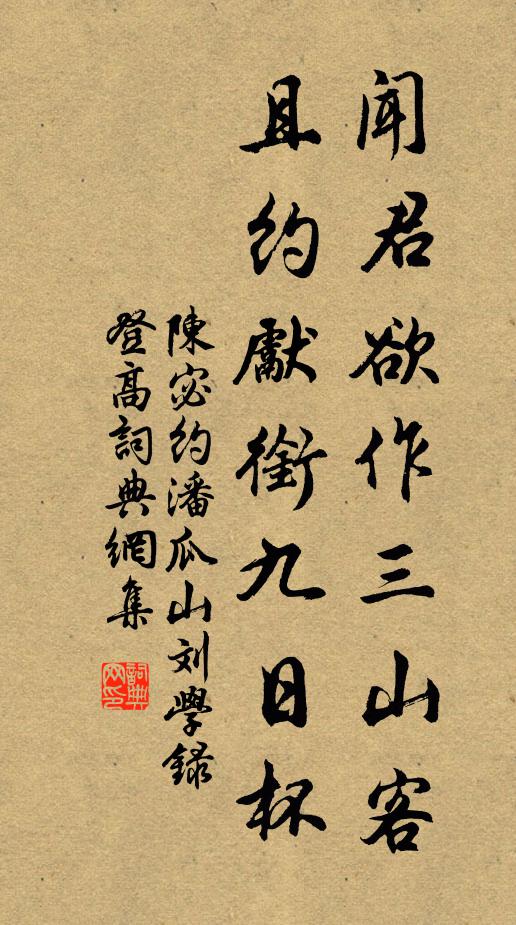 闻君欲作三山客
且约獻銜九日杯
陳宓约潘瓜山刘學録
登高詞典網集
詞典网印